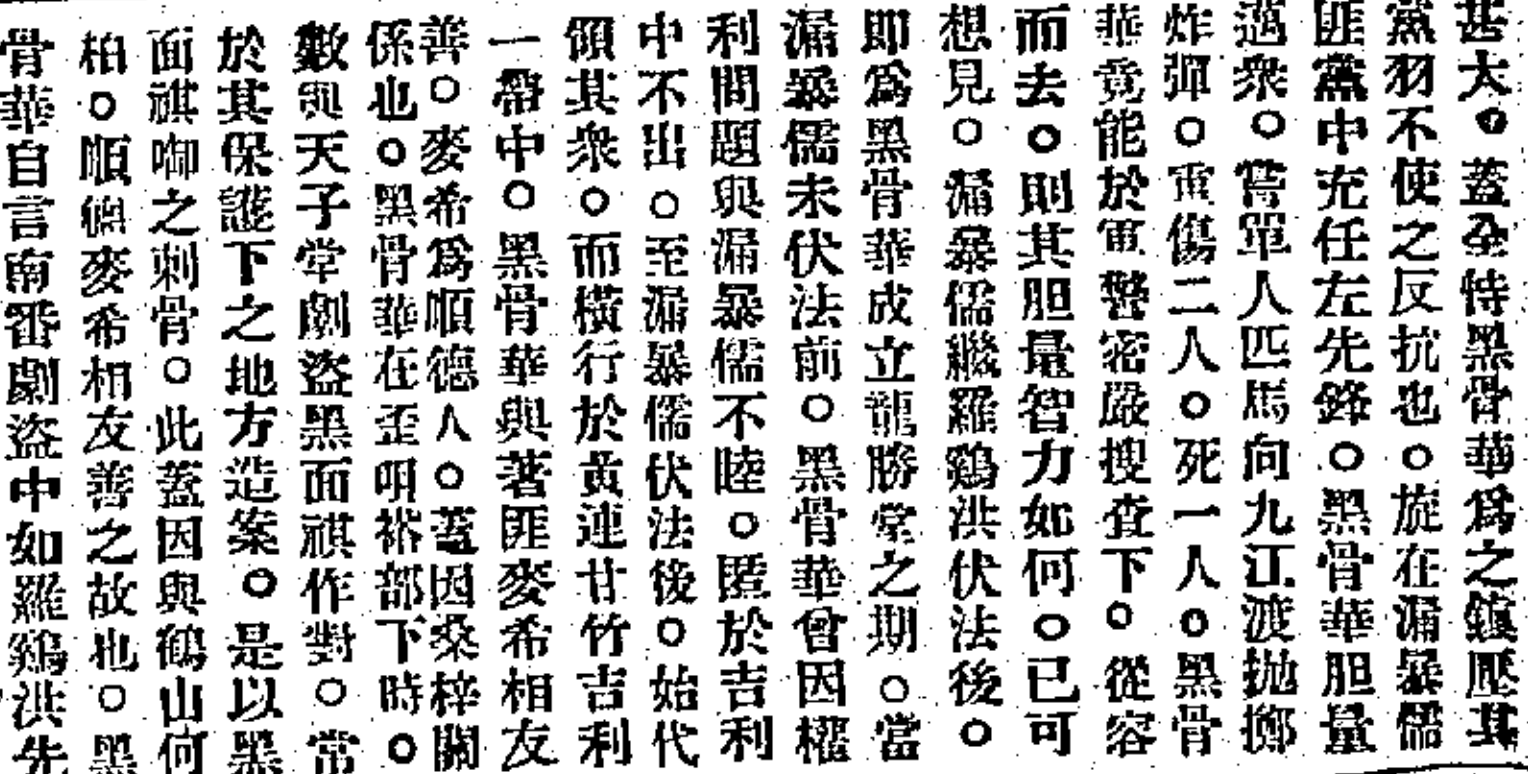 甚大。蓋全恃黑骨華爲之鎮壓其
黨羽不使之反抗也。旋在漏暴儒
匪黨中充任左先鋒。黑骨華胆量
邁衆。嘗單人匹馬向九江渡拋擲
炸彈。重傷二人。死一人。黑骨
華竟能於軍警密嚴搜查下。從容
而去。則其胆量智力如何。已可
想見。漏暴儒繼羅鷄洪伏法後。
即爲黑骨華成立龍勝堂之期。當
漏暴儒未伏法前。黑骨華曾因權
利問題與漏暴儒不睦。匿於吉利
中不出。至漏暴儒伏法後。始代
領其衆。而橫行於黃連甘竹吉利
一帶中。黑骨華與著匪麥希相友
善。麥希爲順德人。蓋因桑梓關
係也。黑骨華在歪咀裕部下時。
數與天子堂劇盜黑面祺作對。常
於其保護下之地方造案。是以黑
面祺啣之刺骨。此蓋因與鶴山何
柏。順德麥希相友善之故也。黑
骨華自言南番劇盜中如羅鷄洪先